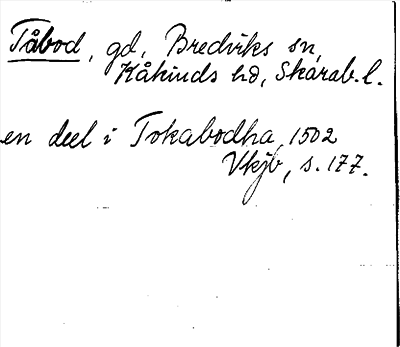 Tåbod, gd, Bredviks sn,
Kåkinds hd, Skarab.l.
en deel i Tokabodha, 1502
Vkjb, s. 177.